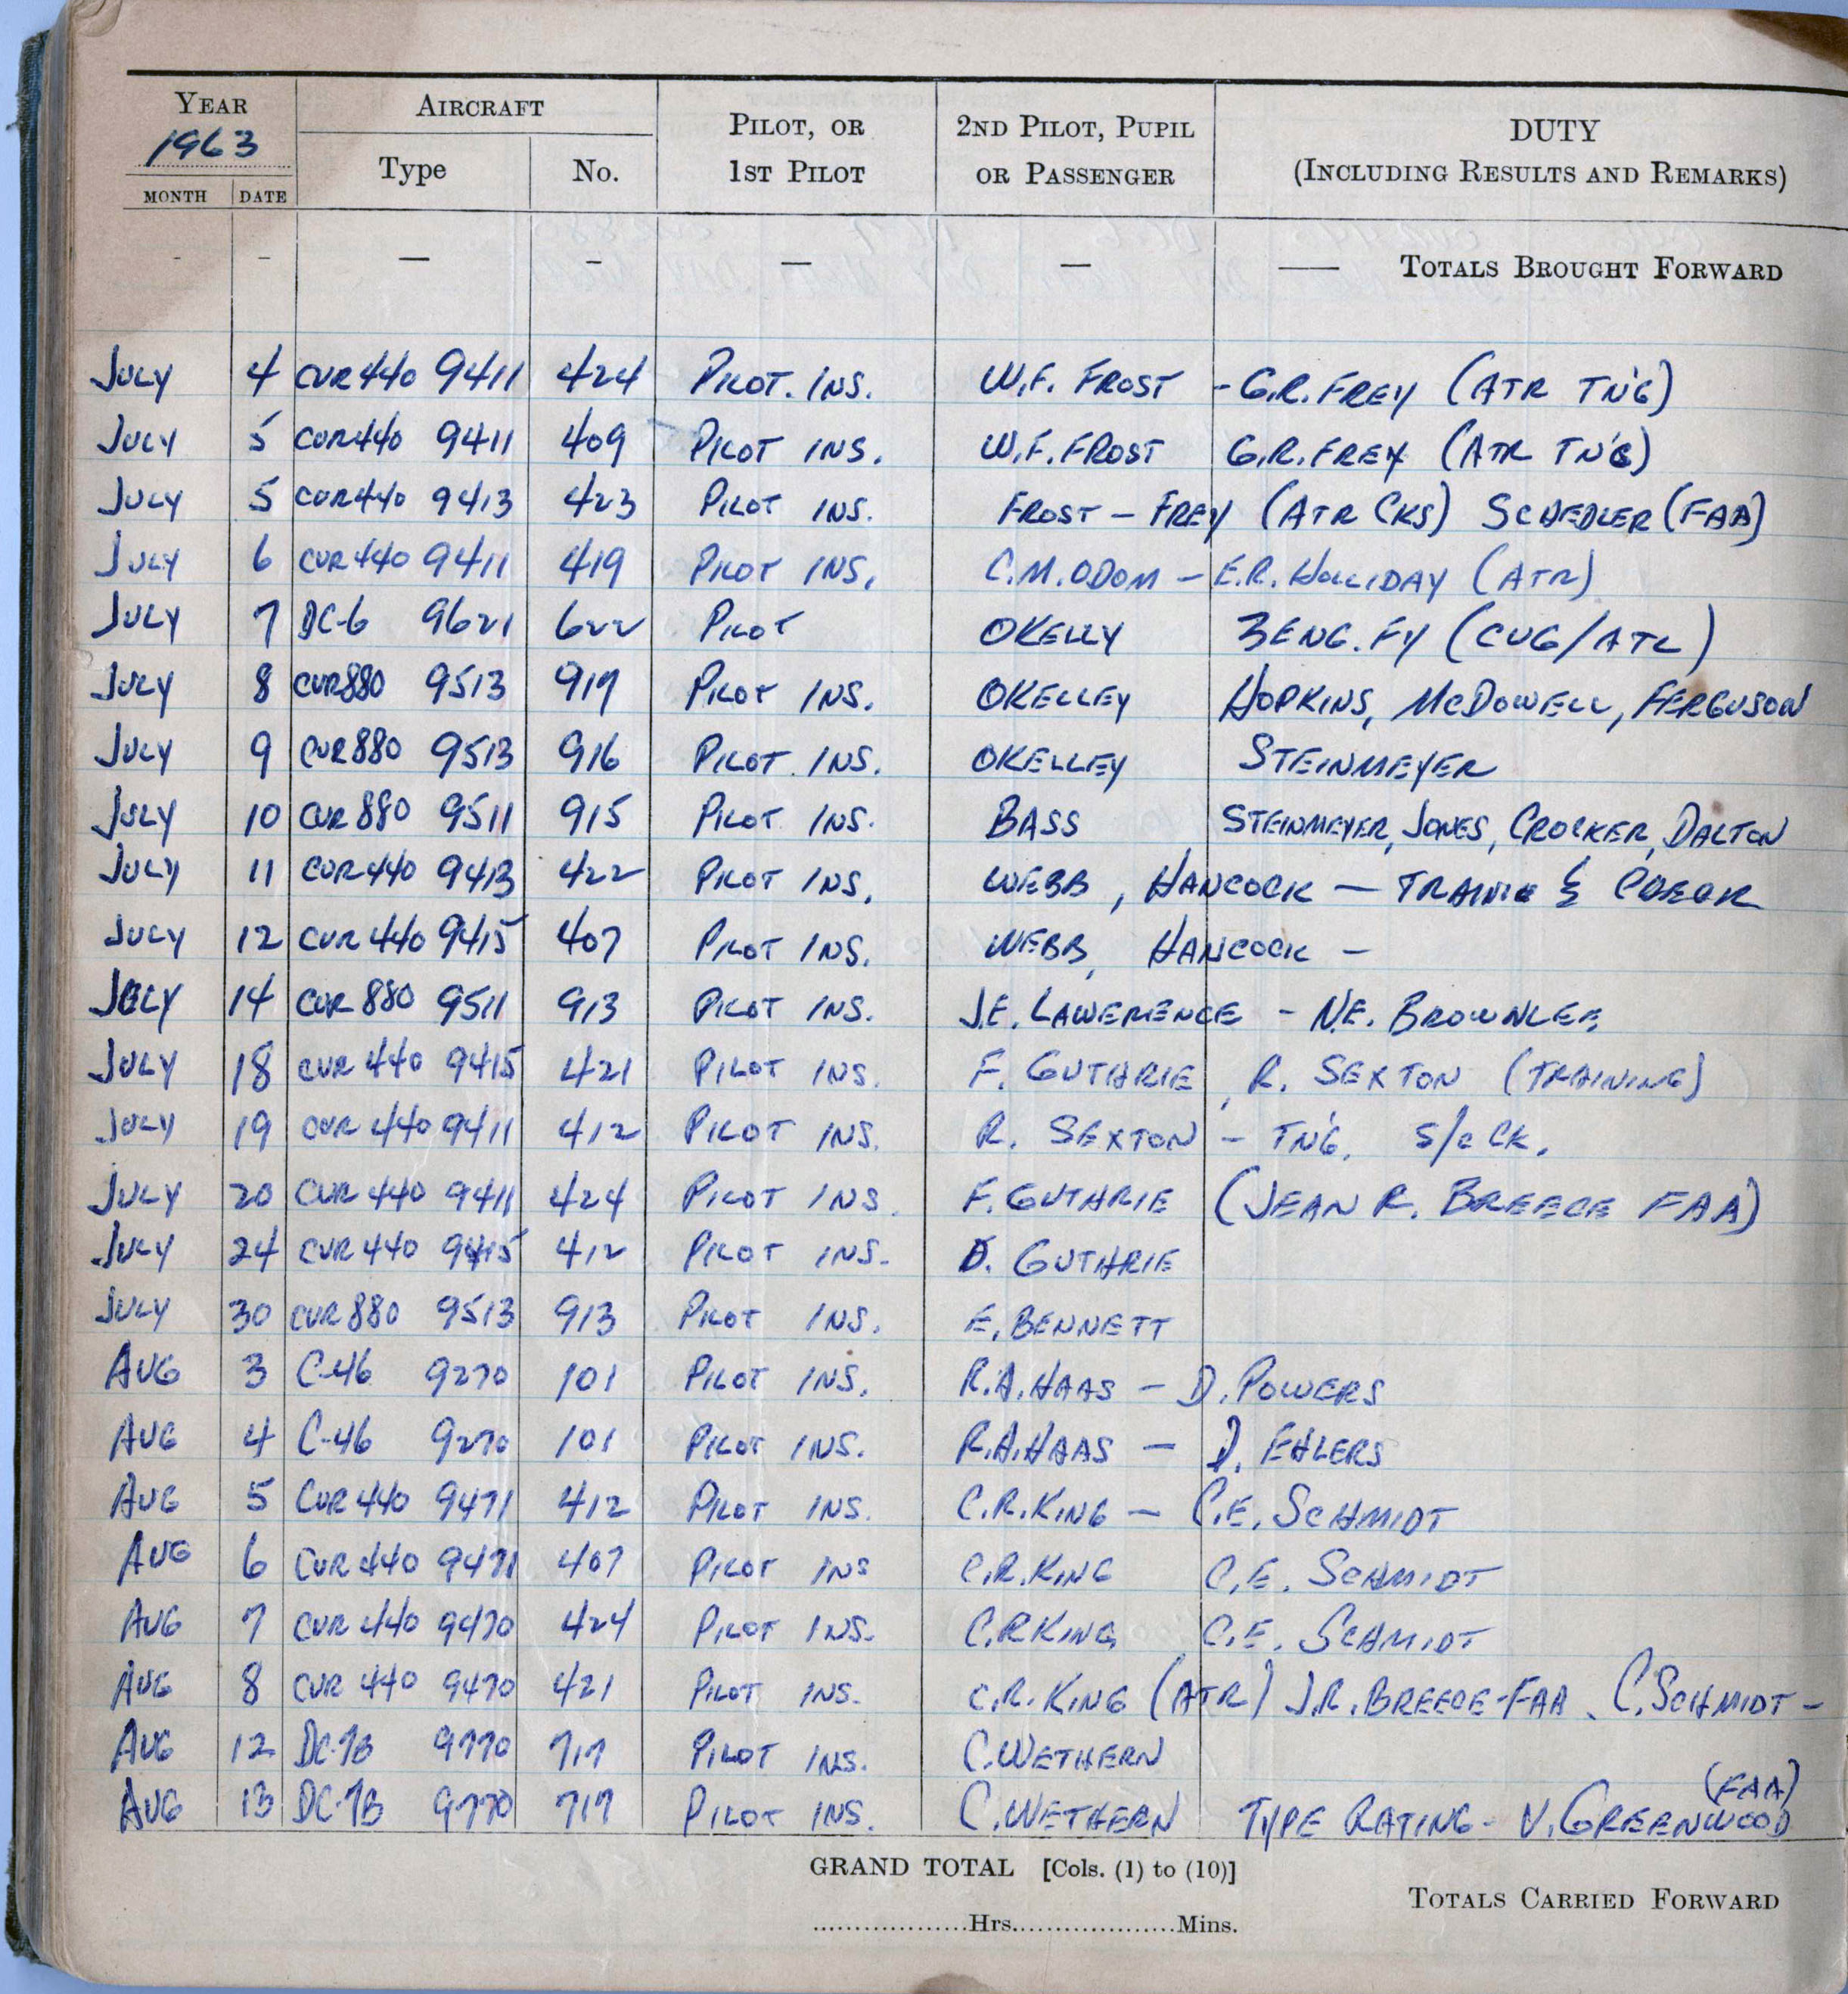 YEAR AIRCRAFT PILOT, OR 2ND PILOT, PUPIL DUTY
1963 Type No. 1ST PILOT OR PASSENGER (INCLUDING RESULTS AND REMARKS)
MONTH DATE
- - — - — — — TOTALS BROUGHT FORWARD
JULY 4 CVR440 9411 424 PILOT. INS. W.F. FROST - G.R. FREY (ATR TN'G)
JULY 5 CVR440 9411 409 PILOT INS. W.F. FROST G.R. FREY (ATR TN'G)
JULY 5 CVR440 9413 423 PILOT INS. FROST - FREY (ATR CKS) SCHEDLER (FAA)
JULY 6 CVR440 9411 419 PILOT INS. C.M. ODOM - E.R. HOLLIDAY (ATR)
JULY 7 DC-6 9621 622 PILOT OKELLY 3 ENG. FY (CVG/ATL)
JULY 8 CVR880 9513 917 PILOT INS. OKELLEY HOPKINS, MCDOWELL, FERGUSON
JULY 9 CVR880 9513 916 PILOT INS. OKELLEY STEINMEYER
JULY 10 CVR880 9511 915 PILOT INS. BASS STEINMEYER, JONES, CROCKER, DALTON
JULY 11 CVR440 9413 422 PILOT INS. WEBB, HANCOCK — & CHECK
JULY 12 CVR440 9415 407 PILOT INS. WEBB, HANCOCK -
JULY 14 CVR880 9511 913 PILOT INS. J.E. LAWERENCE - N.E. BROWNLEE
JULY 18 CVR440 9415 421 PILOT INS. F. GUTHRIE, R. SEXTON (TRAINING)
JULY 19 CVR440 9411 412 PILOT INS. R. SEXTON - TN'G. S/C CK.
JULY 20 CVR440 9411 424 PILOT INS. F. GUTHRIE (JEAN R. BREECE FAA)
JULY 24 CVR440 9415 412 PILOT INS. D. GUTHRIE
JULY 30 CVR880 9513 913 PILOT INS. E. BENNETT
AUG 3 C-46 9270 101 PILOT INS. R.A. HAAS - D. POWERS
AUG 4 C-46 9270 101 PILOT INS. R.A. HAAS - D. EHLERS
AUG 5 CVR440 9471 412 PILOT INS. C.R. KING - C.E. SCHMIDT
AUG 6 CVR440 9471 407 PILOT INS C.R. KING C.E. SCHMIDT
AUG 7 CVR440 9470 424 PILOT INS. C.R KING C.E. SCHMIDT
AUG 8 CVR440 9470 421 PILOT INS. C.R. KING (ATR) J.R. BREECE-FAA. C. SCHMIDT -
AUG 12 DC-7B 9770 717 PILOT INS. C. WETHERN
AUG 13 DC-7B 9770 717 PILOT INS. C. WETHERN TYPE RATING - V. GREENWOOD (FAA)
GRAND TOTAL [Cols. (1) to (10)]
TOTALS CARRIED FORWARD
..................Hrs...................Mins.